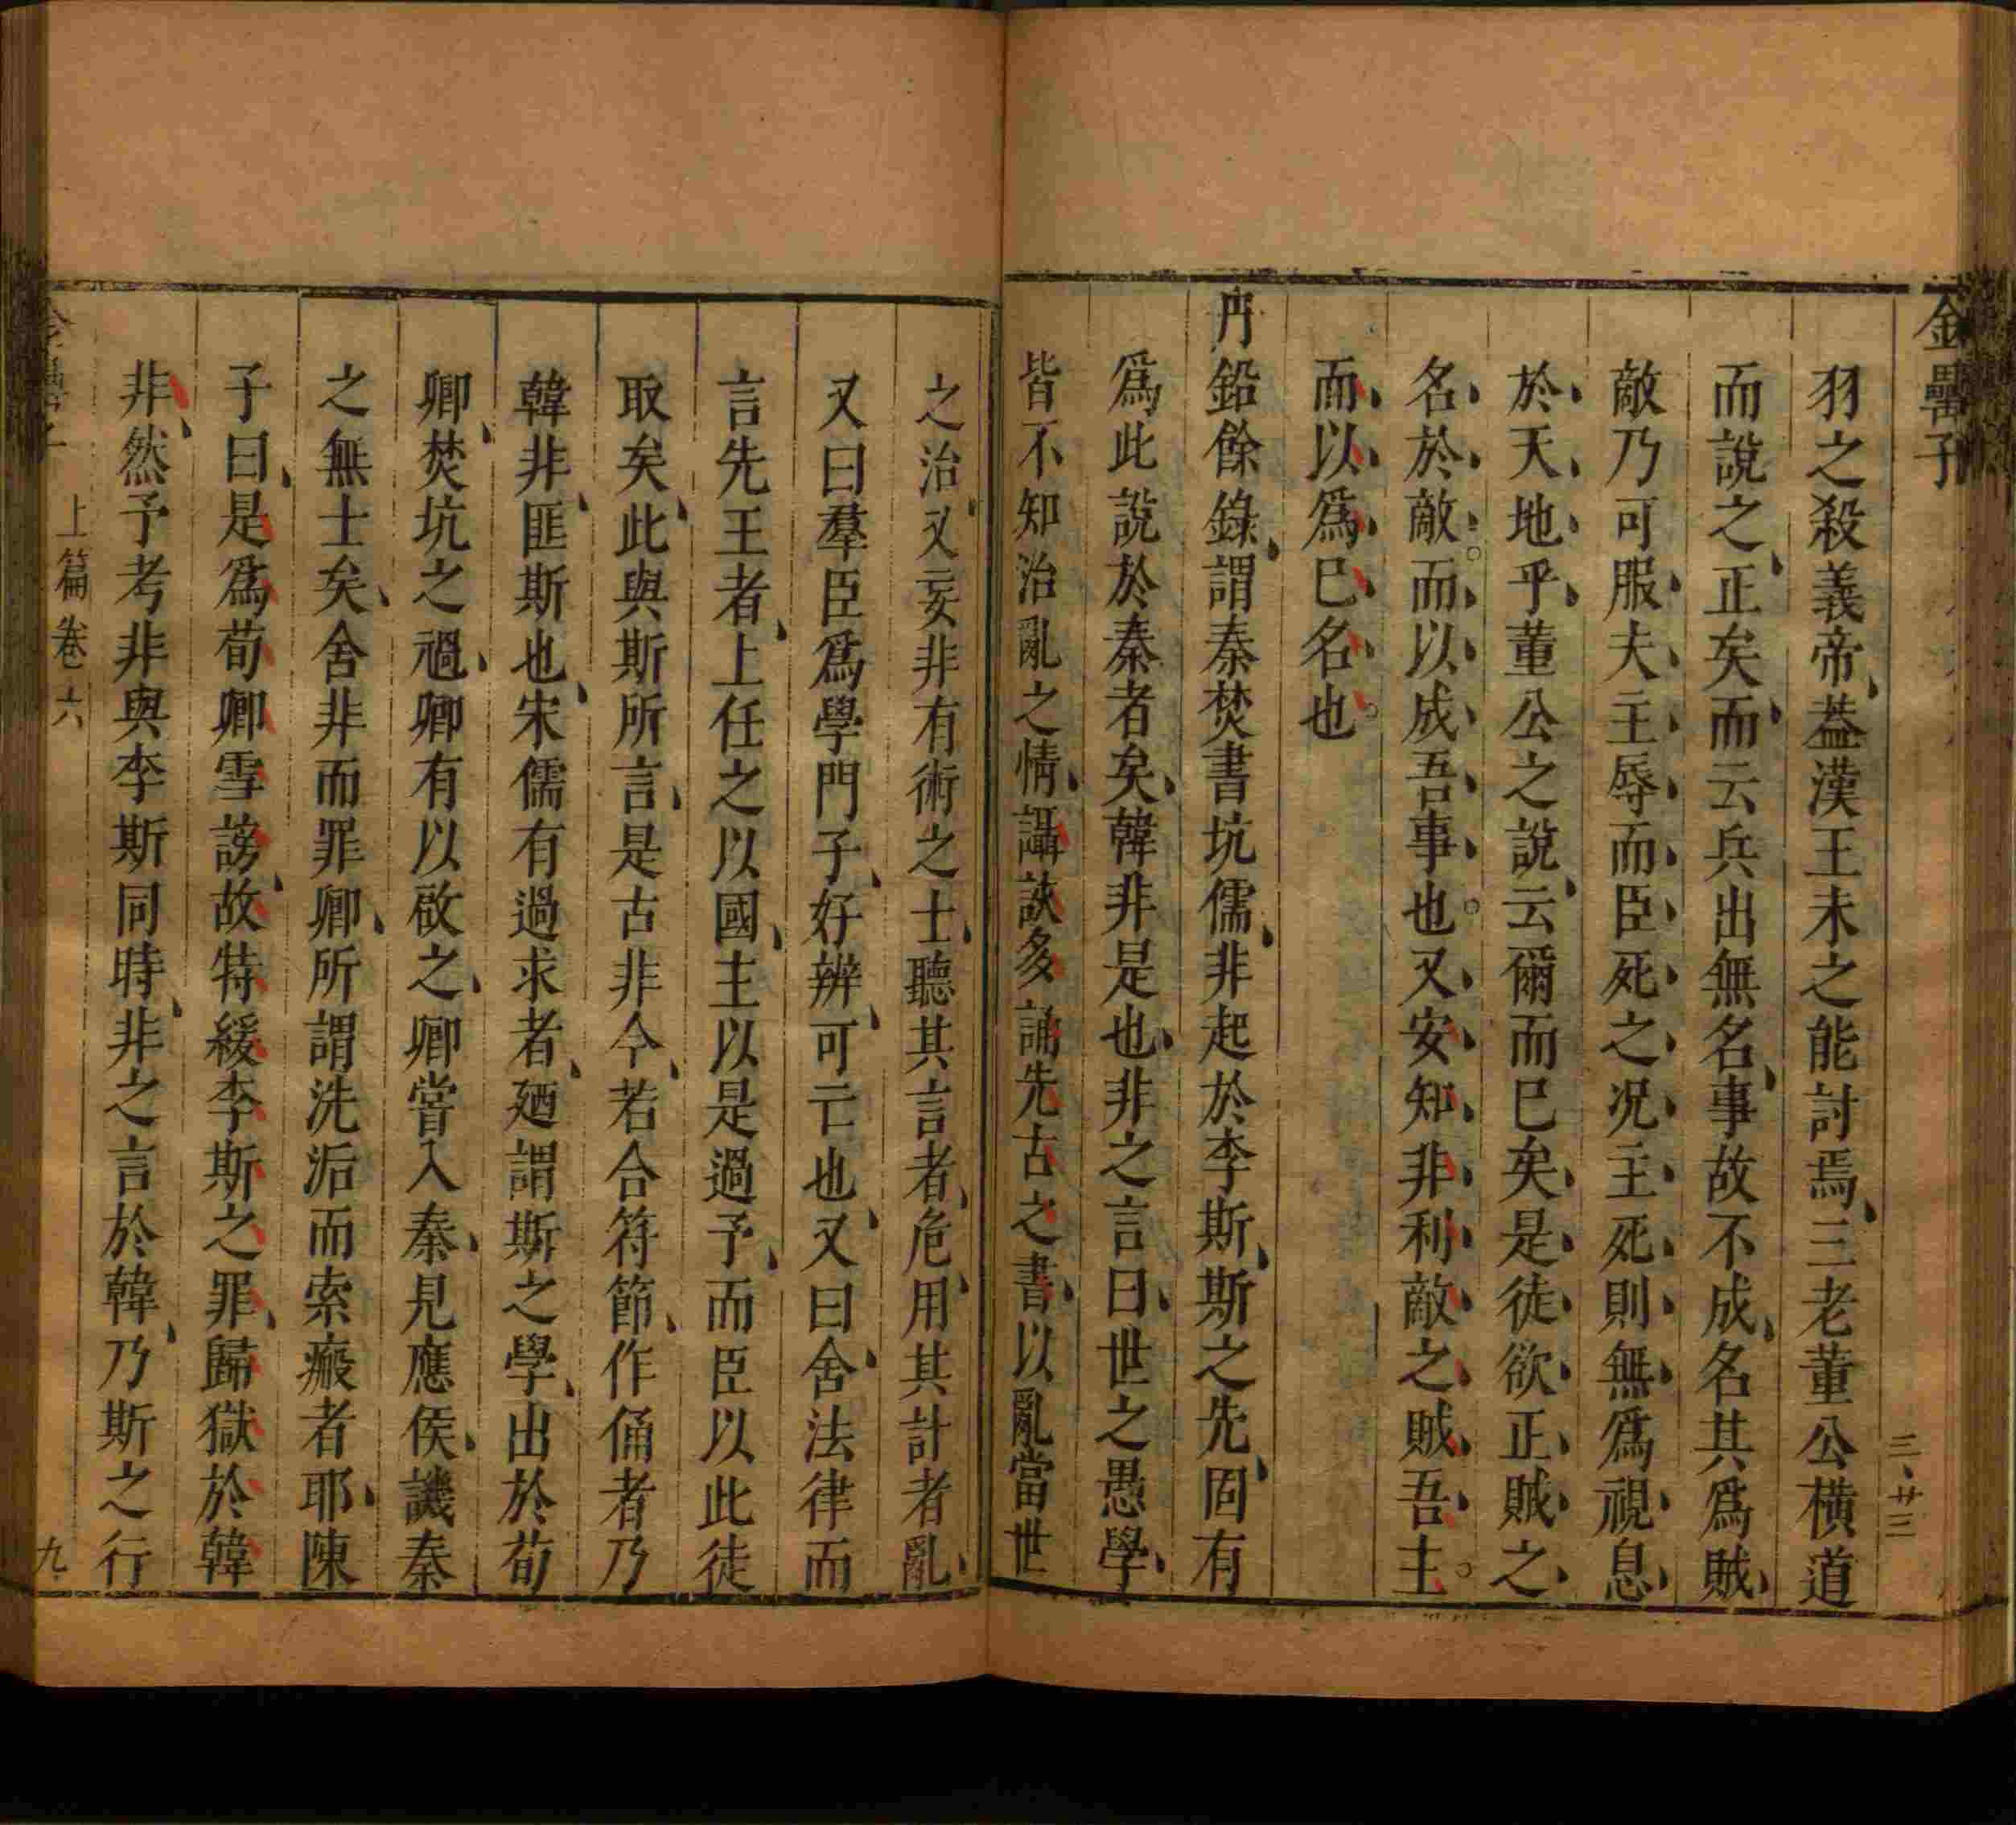 金罍子
三廿三
羽之殺義帝葢漢王未之能討焉三老董公橫道
而說之正矣而云兵出無名事故不成名其爲賊
敵乃可服夫主辱而臣死之况主死則無爲視息
於天地乎董公之說云爾而已矣是徒欲正賊之
名於敵而以成吾事也又安知非利敵之賊吾主
而以爲已名也
丹鉛餘錄謂秦焚書坑儒非起於李斯斯之先固有
爲此說於秦者矣韓非是也非之言曰世之愚學
皆不知治亂之情讘䛟多誦先古之書以亂當世
之治又妄非有術之士聽其言者危用其計者亂
又曰羣臣爲學門子好辨可亡也又曰舍法律而
言先王者上任之以國主以是過予而臣以此徒
取矣此與斯所言是古非今若合符節作俑者乃
韓非匪斯也宋儒有過求者廼謂斯之學出於荀
卿焚坑之禍卿有以啟之卿嘗入秦見應侯譏秦
之無士矣舍非而罪卿所謂洗垢而索瘢者耶陳
子曰是爲荀卿雪謗故特緩李斯之罪歸獄於韓
非然予考非與李斯同時非之言於韓乃斯之行
上篇卷六
九